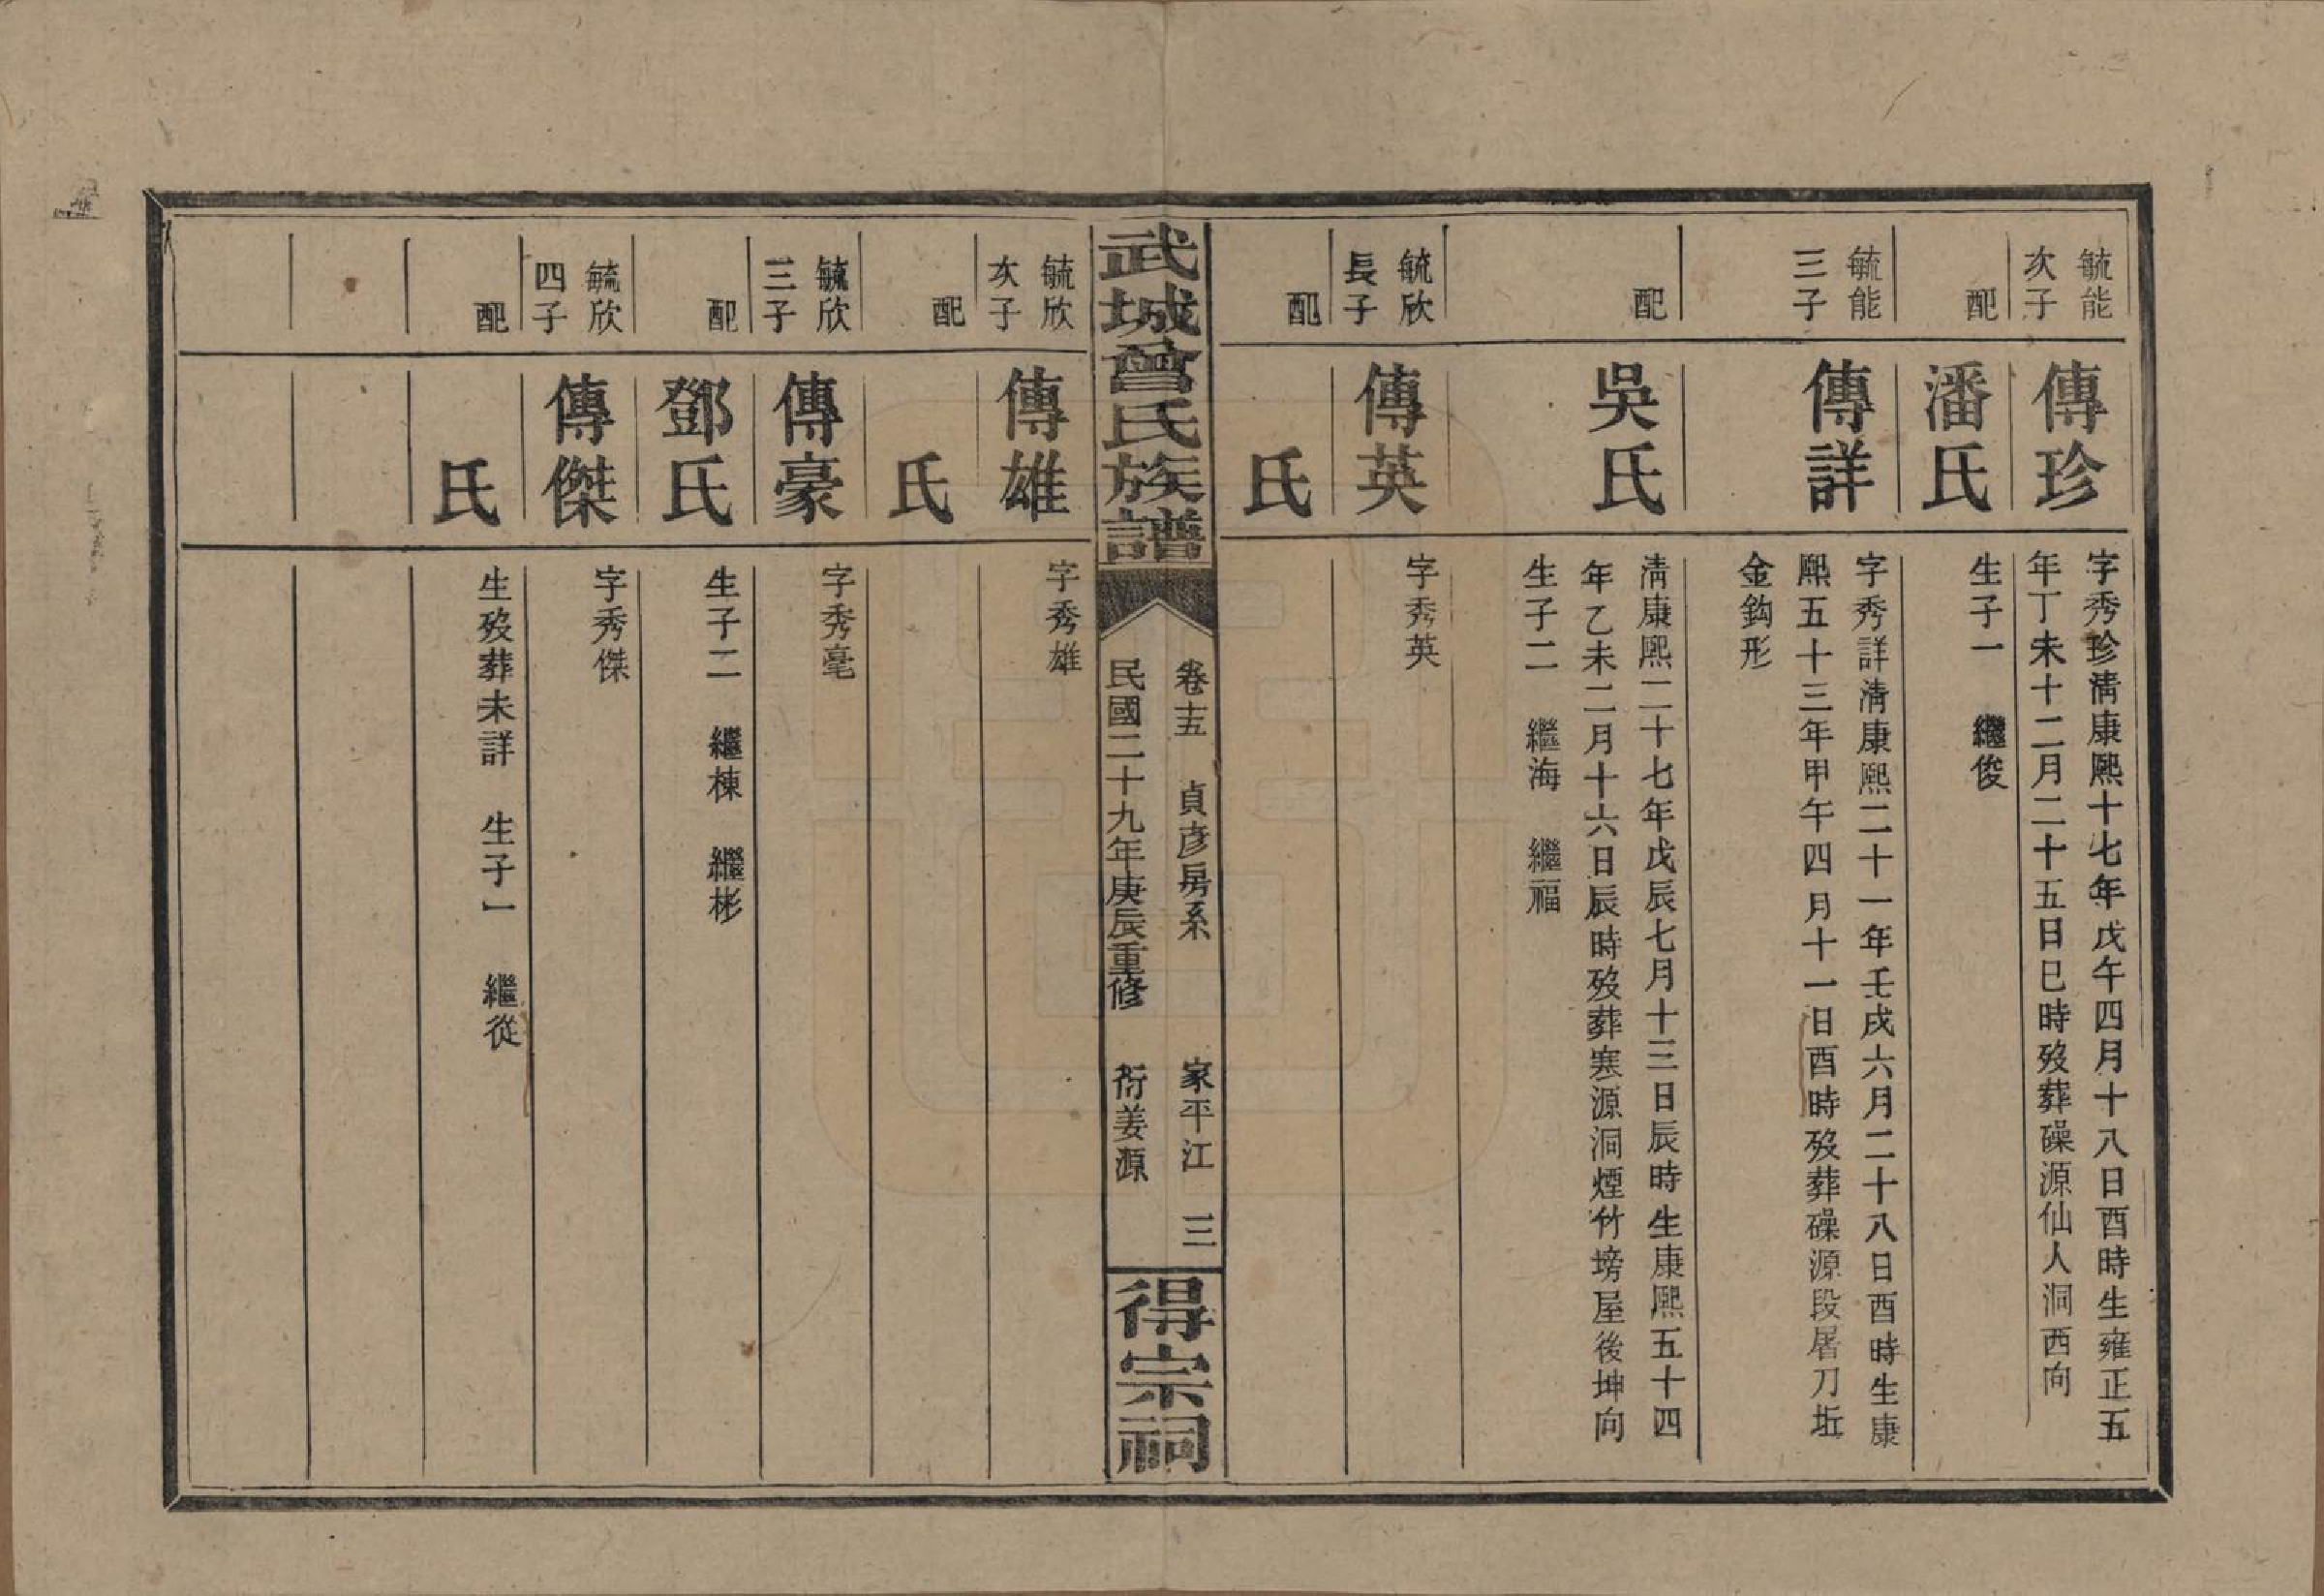 毓能
次子
傳珍
字秀珍淸康熙十七年戊午四月十八日酉時生雍正五
年丁未十二月二十五日巳時歿葬磉源仙人洞西向
配
潘氏
生子一　繼俊
毓能
三子
傳詳
字秀詳淸康熙二十一年壬戌六月二十八日酉時生康
熙五十三年甲午四月十一日酉時歿葬磉源段屠刀坵
金鈎形
配
吳氏
淸康熙二十七年戊辰七月十三日辰時生康熙五十四
年乙未二月十六日辰時歿葬寒源洞煙竹塝屋後坤向
生子二　繼海　繼福
毓欣
長子
傳英
字秀英
配
氏
武城曾氏族譜
卷十五　貞彥房系　家平江　三
民國二十九年庚辰重修　衍姜源
得宗祠
毓欣
次子
傳雄
字秀雄
配
氏
毓欣
三子
傳豪
字秀毫
配
鄧氏
生子二　繼棟　繼彬
毓欣
四子
傳傑
字秀傑
配
氏
生歿葬未詳　生子一　繼從